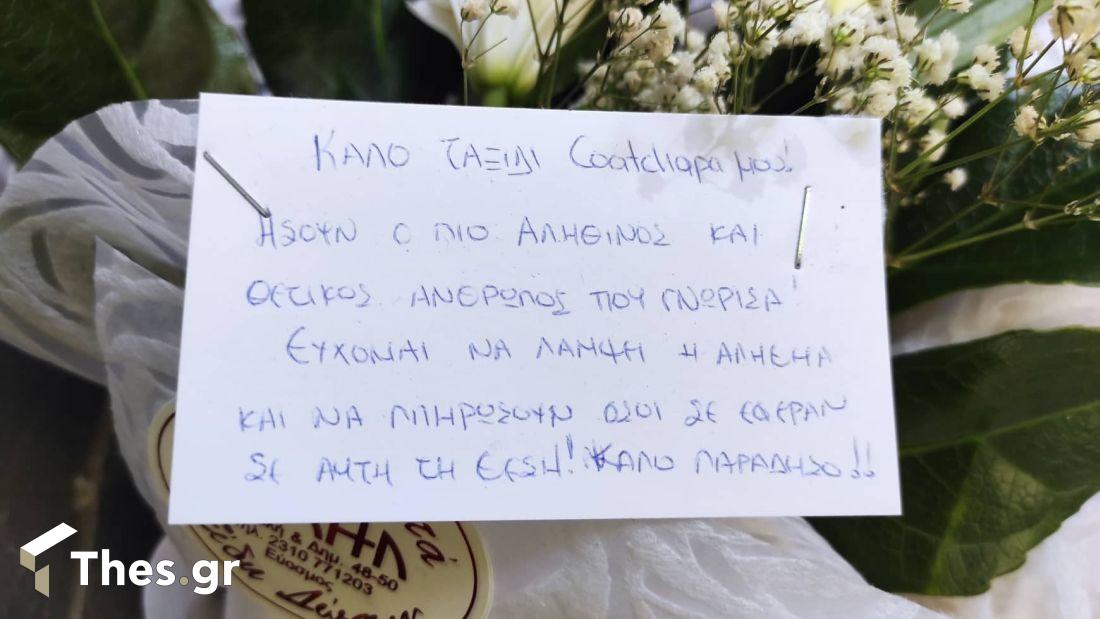 ΚΑΛΟ ΤΑΞΙΔΙ Coatchαρα μου!
ΗΣΟΥΝ Ο ΠΙΟ ΑΛΗΘΙΝΟΣ ΚΑΙ
ΘΕΤΙΚΟΣ ΑΝΘΡΩΠΟΣ ΠΟΥ ΓΝΩΡΙΣΑ!
ΕΥΧΟΜΑΙ ΝΑ ΛΑΜΨΗ Η ΑΛΗΘΗΑ
ΚΑΙ ΝΑ ΠΛΗΡΩΣΟΥΝ ΟΣΟΙ ΣΕ ΕΦΕΡΑΝ
ΣΕ ΑΥΤΗ ΤΗ ΘΕΣΗ! ΚΑΛΟ ΠΑΡΑΔΗΣΟ!!
& Δημ. 48-50
ΤΗΛ. 2310 771203
Εύοσμος
Thes.gr